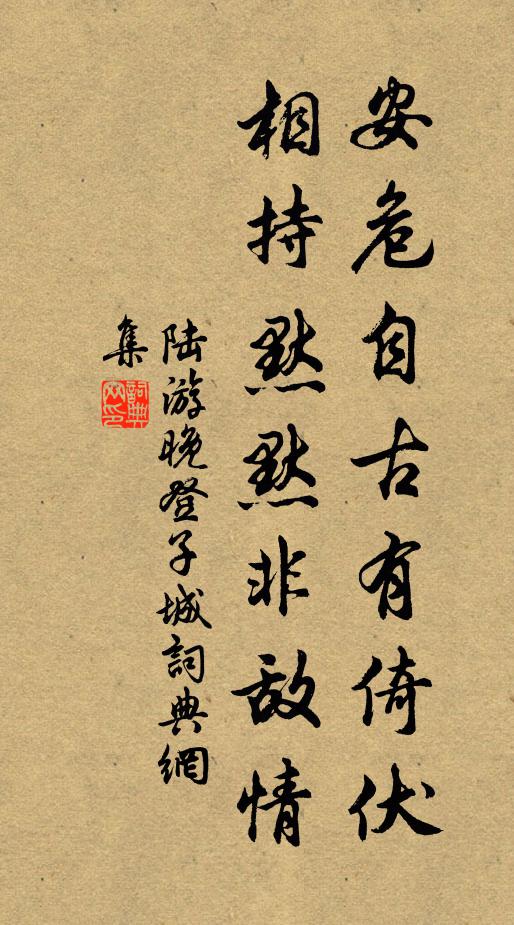 安危自古有倚伏
相持默默非敌情
陆游晚登子城詞典網
集
詞典网印